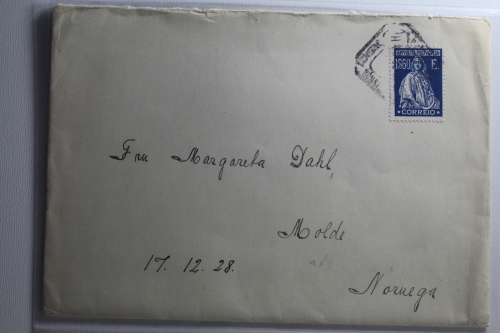 1$60 E.
CORREIO
Fru Margareta Dahl,
Molde
17. 12. 28.
Noruega